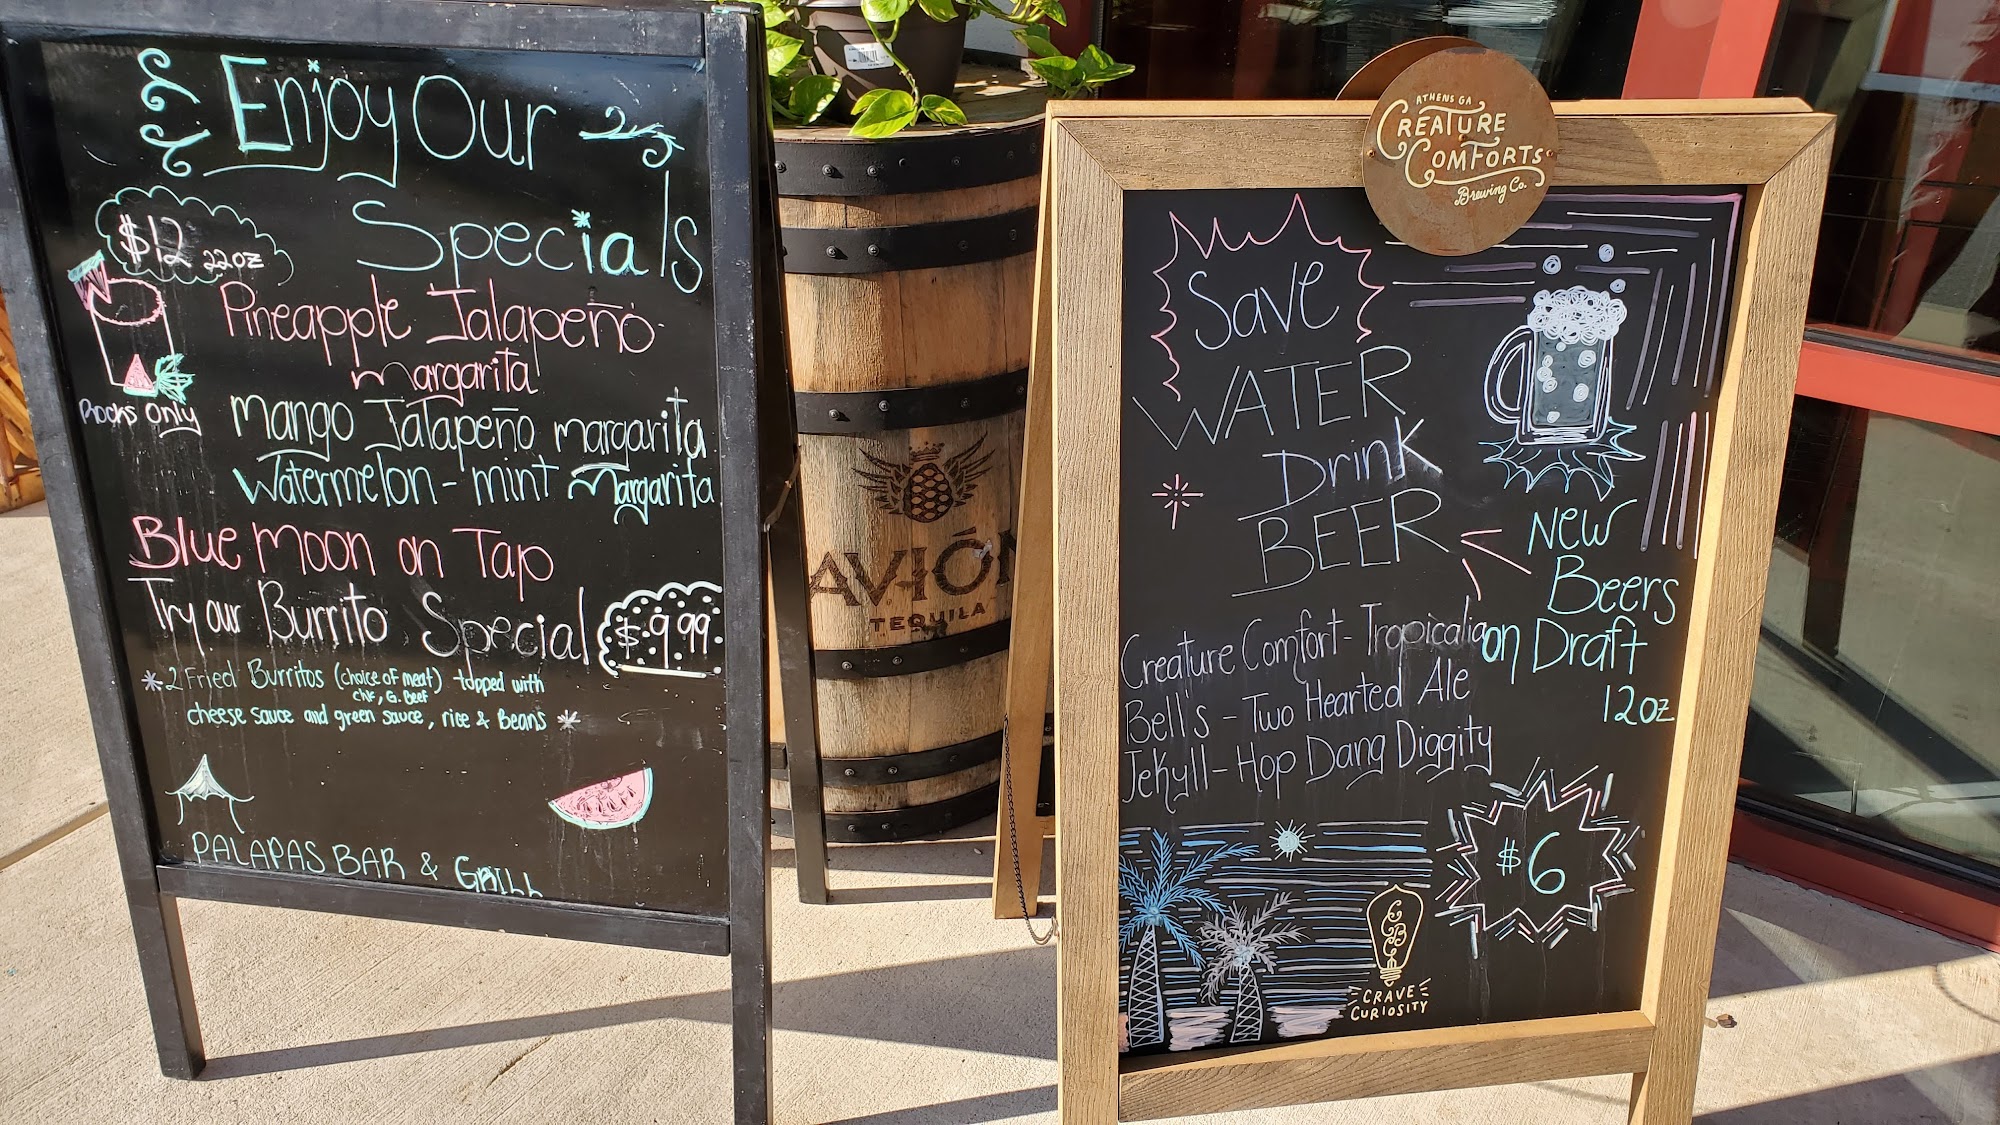 Enjoy Our
Specials
$12 22oz
Pineapple Jalapeño
Margarita
Rocks Only
Mango Jalapeño Margarita
Watermelon - mint Margarita
Blue Moon on Tap
Try our Burrito Special $9.99
*2 Fried Burritos (choice of meat) topped with
chk, G. Beef
cheese sauce and green sauce, rice & Beans *
PALAPAS BAR & GRILL
AVIÓN
TEQUILA
ATHENS GA
CREATURE
COMFORTS
Brewing Co.
Save
WATER
Drink
BEER
New
Beers
on Draft
12oz
Creature Comfort - Tropicalia
Bell's - Two Hearted Ale
Jekyll - Hop Dang Diggity
$6
CCBC
CRAVE
CURIOSITY